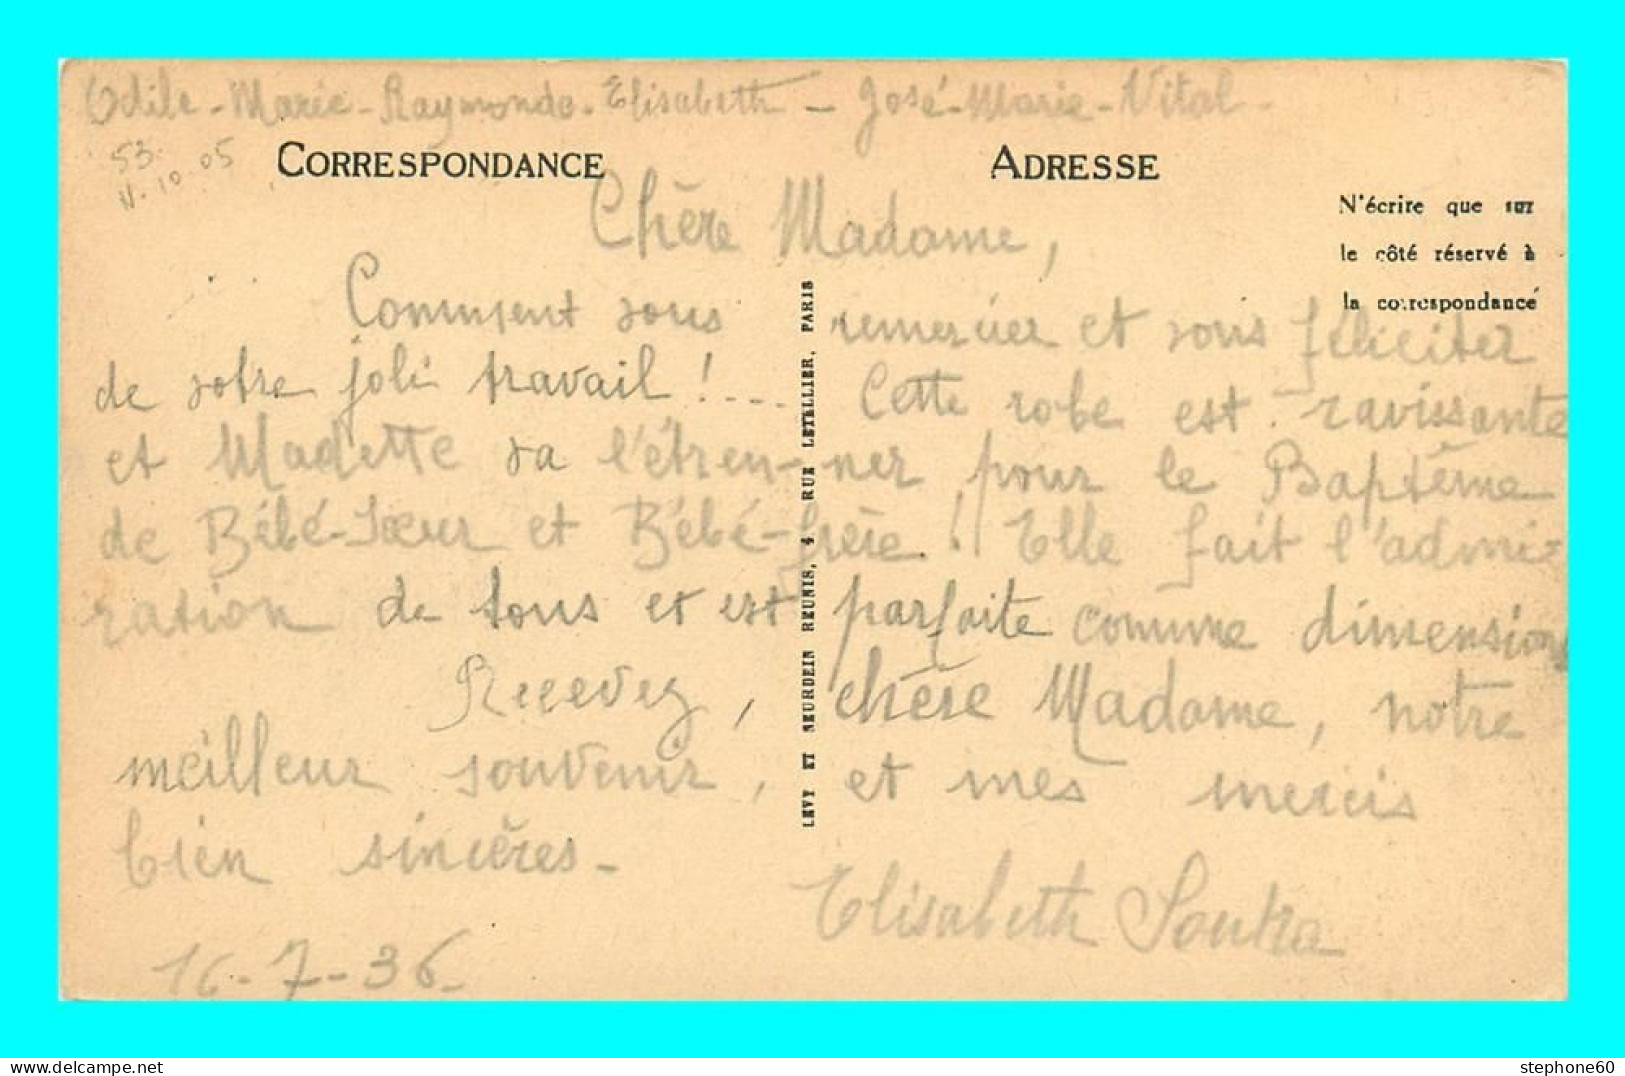 Odile - Marie - Raymonde - Elisabeth - José - Marie - Vital -
53.
10.05
CORRESPONDANCE
ADRESSE
N'écrire que sur
le côté réservé à
la correspondance
Chère Madame,
Comment vous remercier et vous féliciter
de votre joli travail !.... Cette robe est ravissante
et Madette va l'étren-ner pour le Baptême
de Bébé-Sœur et Bébé-frère ! Elle fait l'admi-
ration de tous et est parfaite comme dimensions
Recevez, chère Madame, notre
meilleur souvenir, et mes mercis
bien sincères -
Elisabeth Soutra
16-7-36.
LEVY ET NEURDEIN REUNIS, 4 RUE LETELLIER, PARIS
stephone60